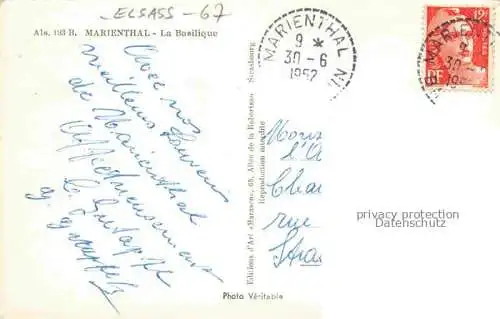 ELSASS - 67
Als. 193 B. MARIENTHAL - La Basilique
MARIENTHAL
9 *
30 - 6
1952
MARIENTHAL
30
12F
RF
Avec nos
meilleurs souvenirs
de Marienthal
Affectueusement
Editions d'Art
Strasbourg
Reproduction interdite
Mons
l'A
Cha
rue
Stra
privacy protection
Datenschutz
Photo Véritable